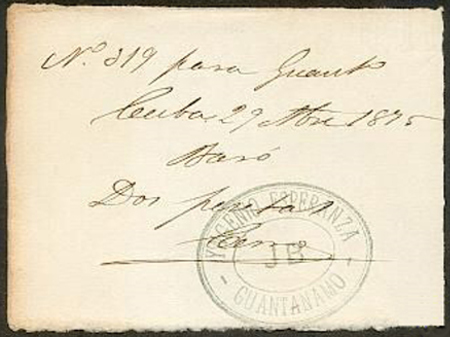 Nº 319 para Guant
Cuba 29 Nbre 1875
Baró
Dos pesetas
YNGENIO ESPERANZA
JB
GUANTANAMO